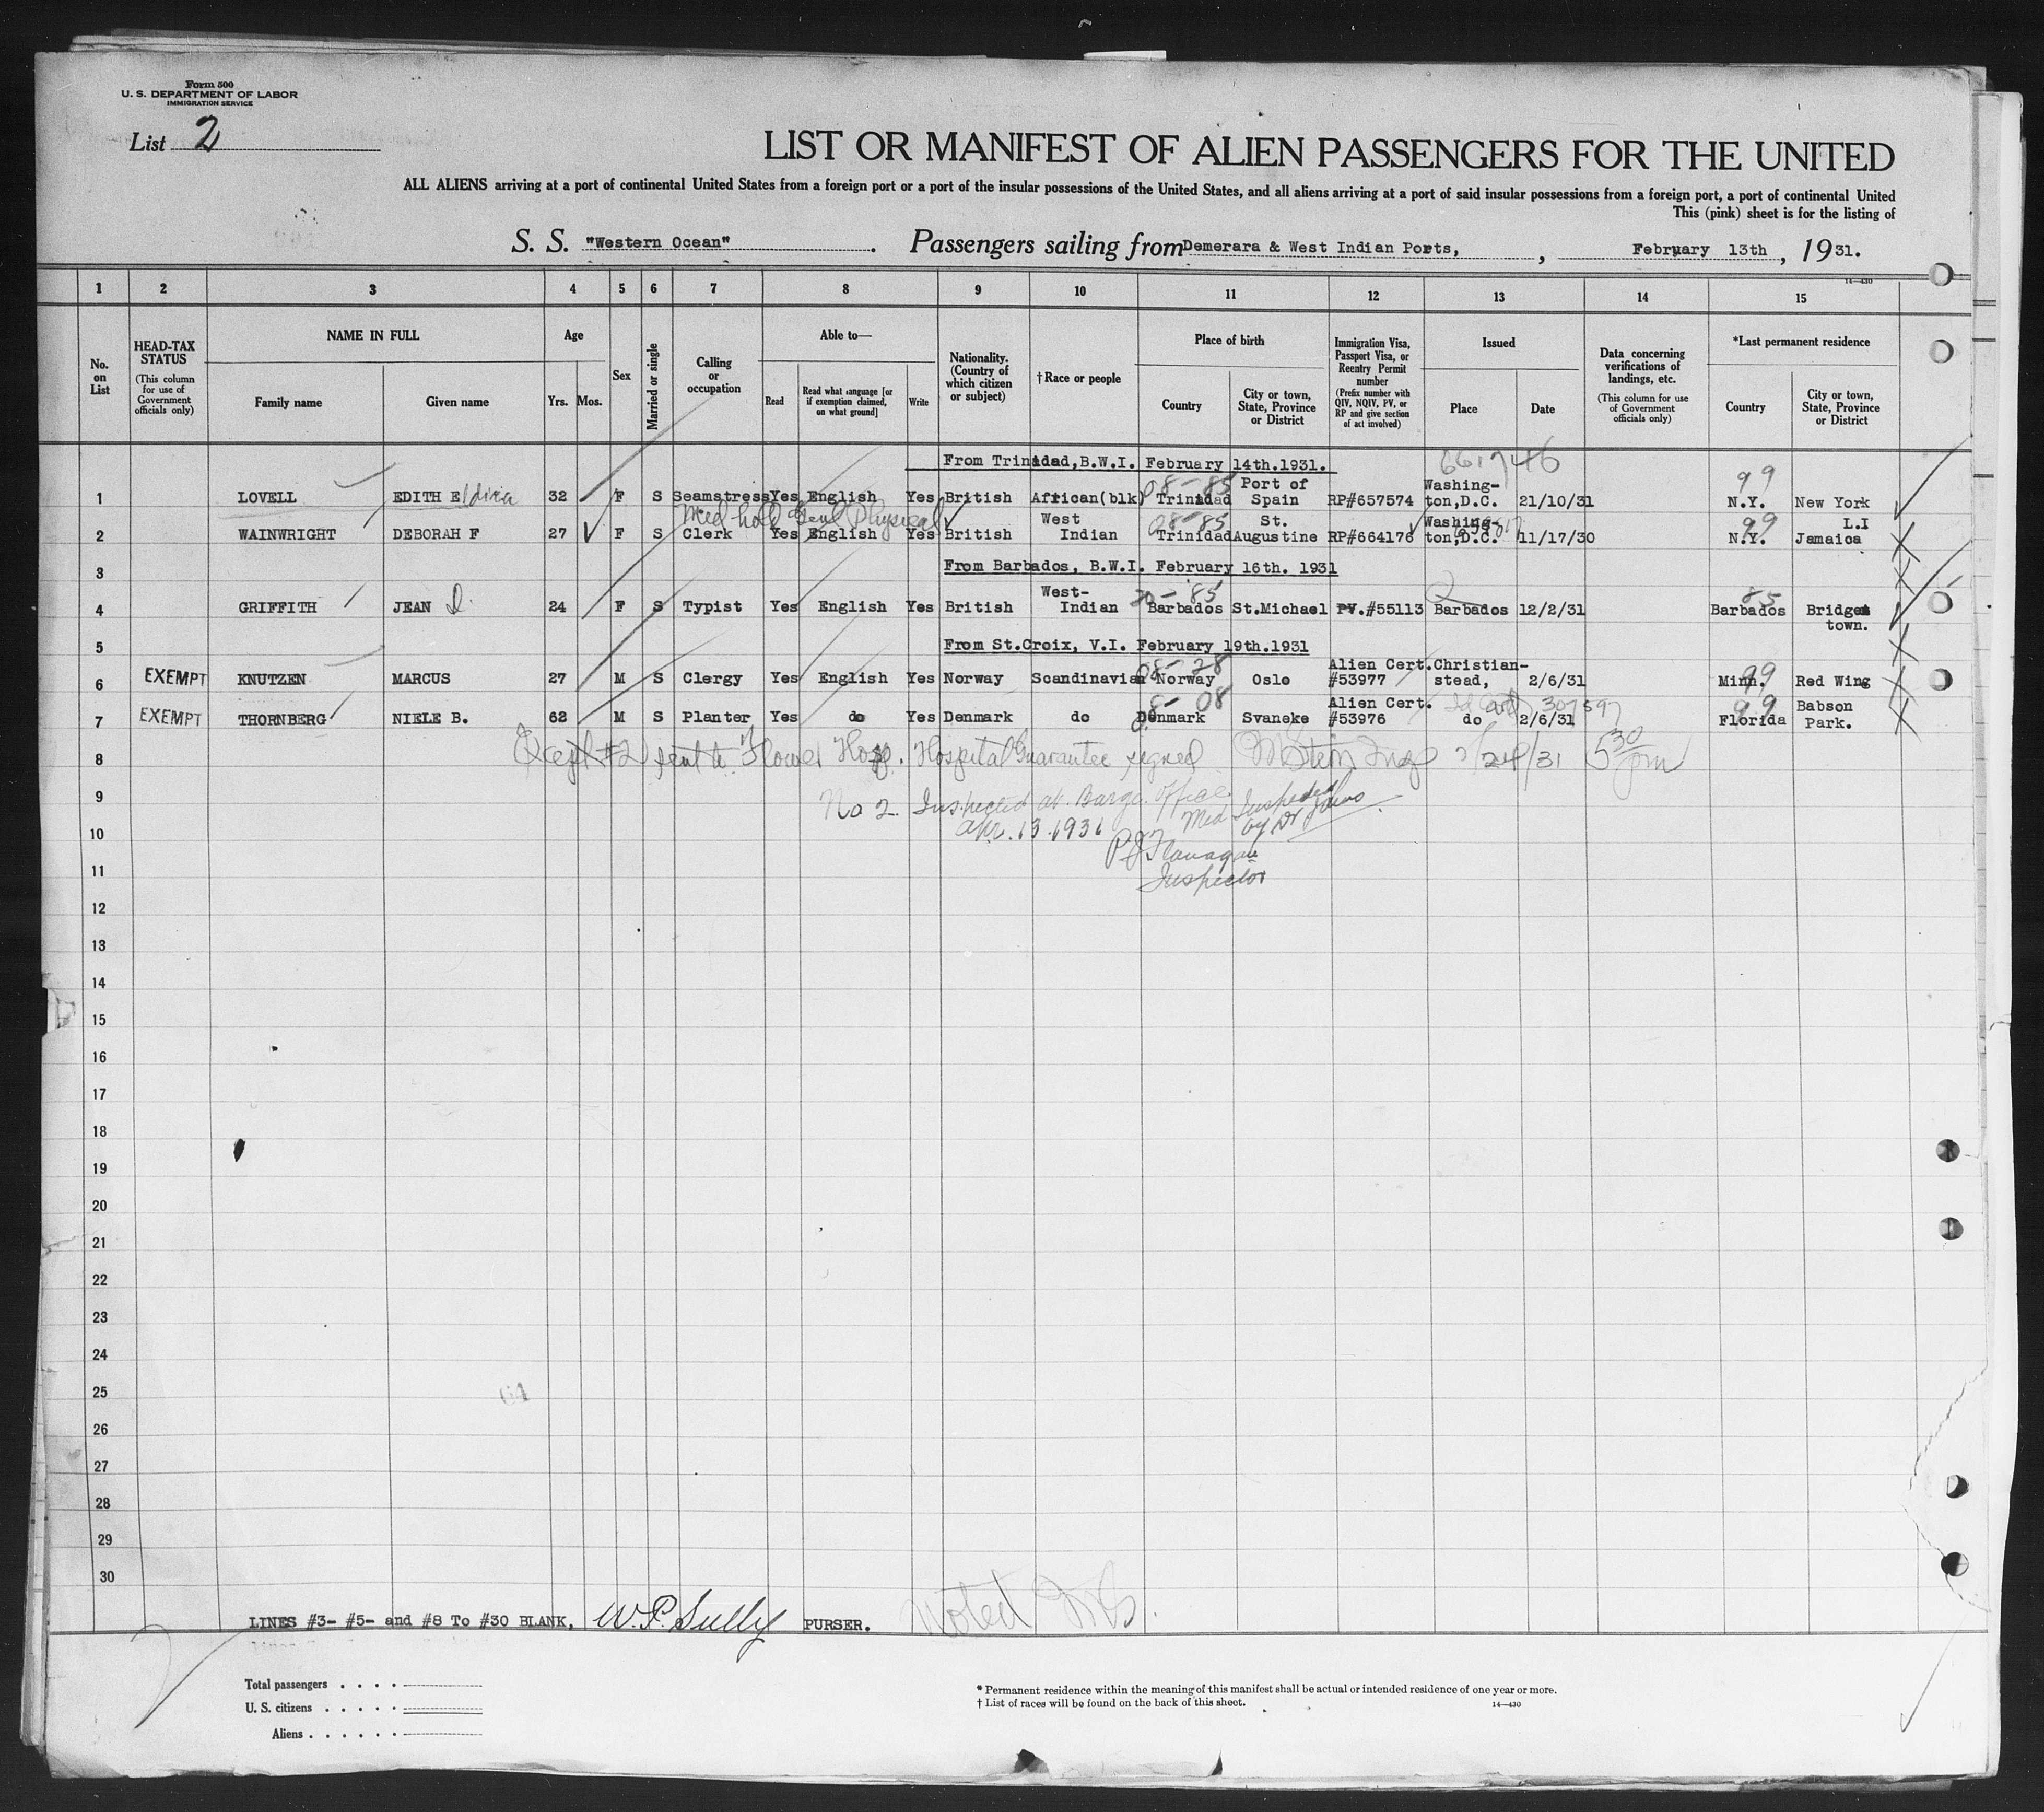 Form 500
U. S. DEPARTMENT OF LABOR
IMMIGRATION SERVICE
List 2
LIST OR MANIFEST OF ALIEN PASSENGERS FOR THE UNITED
ALL ALIENS arriving at a port of continental United States from a foreign port or a port of the insular possessions of the United States, and all aliens arriving at a port of said insular possessions from a foreign port, a port of continental United
This (pink) sheet is for the listing of
S. S. "Western Ocean". Passengers sailing from Demerara & West Indian Ports, , February 13th, 1931.
14—430
1 2 3 4 5 6 7 8 9 10 11 12 13 14 15
No. on List
HEAD-TAX STATUS
(This column for use of Government officials only)
NAME IN FULL
Family name
Given name
Age
Yrs.
Mos.
Sex
Married or single
Calling or occupation
Able to—
Read
Read what language [or if exemption claimed, on what ground]
Write
Nationality. (Country of which citizen or subject)
†Race or people
Place of birth
Country
City or town, State, Province or District
Immigration Visa, Passport Visa, or Reentry Permit number
(Prefix number with QIV, NQIV, PV, or RP and give section of act involved)
Issued
Place
Date
Data concerning verifications of landings, etc.
(This column for use of Government officials only)
*Last permanent residence
Country
City or town, State, Province or District
From Trinidad, B.W.I. February 14th.1931.
661746
1 LOVELL EDITH Eldica 32 F S Seamstress Yes English Yes British African(blk) 08-85 Trinidad Port of Spain RP#657574 Washington,D.C. 21/10/31 99 N.Y. New York
Med hold Genl Physical
2 WAINWRIGHT DEBORAH F 27 F S Clerk Yes English Yes British West Indian 08-85 Trinidad St. Augustine RP#664176 Washington,D.C. 11/17/30 99 N.Y. Jamaica L.I
3 From Barbados, B.W.I. February 16th. 1931
4 GRIFFITH JEAN D. 24 F S Typist Yes English Yes British West-Indian 20-85 Barbados St.Michael PV.#55113 Barbados 12/2/31 85 Barbados Bridgetown.
5 From St.Croix, V.I. February 19th.1931
6 EXEMPT KNUTZEN MARCUS 27 M S Clergy Yes English Yes Norway Scandinavian 08-28 Norway Oslo Alien Cert. #53977 Christianstead, 2/6/31 99 Minn. Red Wing
7 EXEMPT THORNBERG NIELE B. 62 M S Planter Yes do Yes Denmark do 8-08 Denmark Svaneke Alien Cert. #53976 do 2/6/31 Id Card 307597 99 Florida Babson Park.
8 Except #2 sent to Flower Hosp. Hospital Guarantee signed 2/24/31 5 30 pm
9 No 2 Inspected at Barge Office Med Inspected
10 Apr. 13. 1931 by Dr
P J Flanagan
11 Inspector
12
13
14
15
16
17
18
19
20
21
22
23
24
25
26
27
28
29
30
LINES #3- #5- and #8 To #30 BLANK, W. P. Sully PURSER. Noted
Total passengers . . . .
U. S. citizens . . . . .
Aliens . . . . . .
* Permanent residence within the meaning of this manifest shall be actual or intended residence of one year or more.
† List of races will be found on the back of this sheet. 14—430